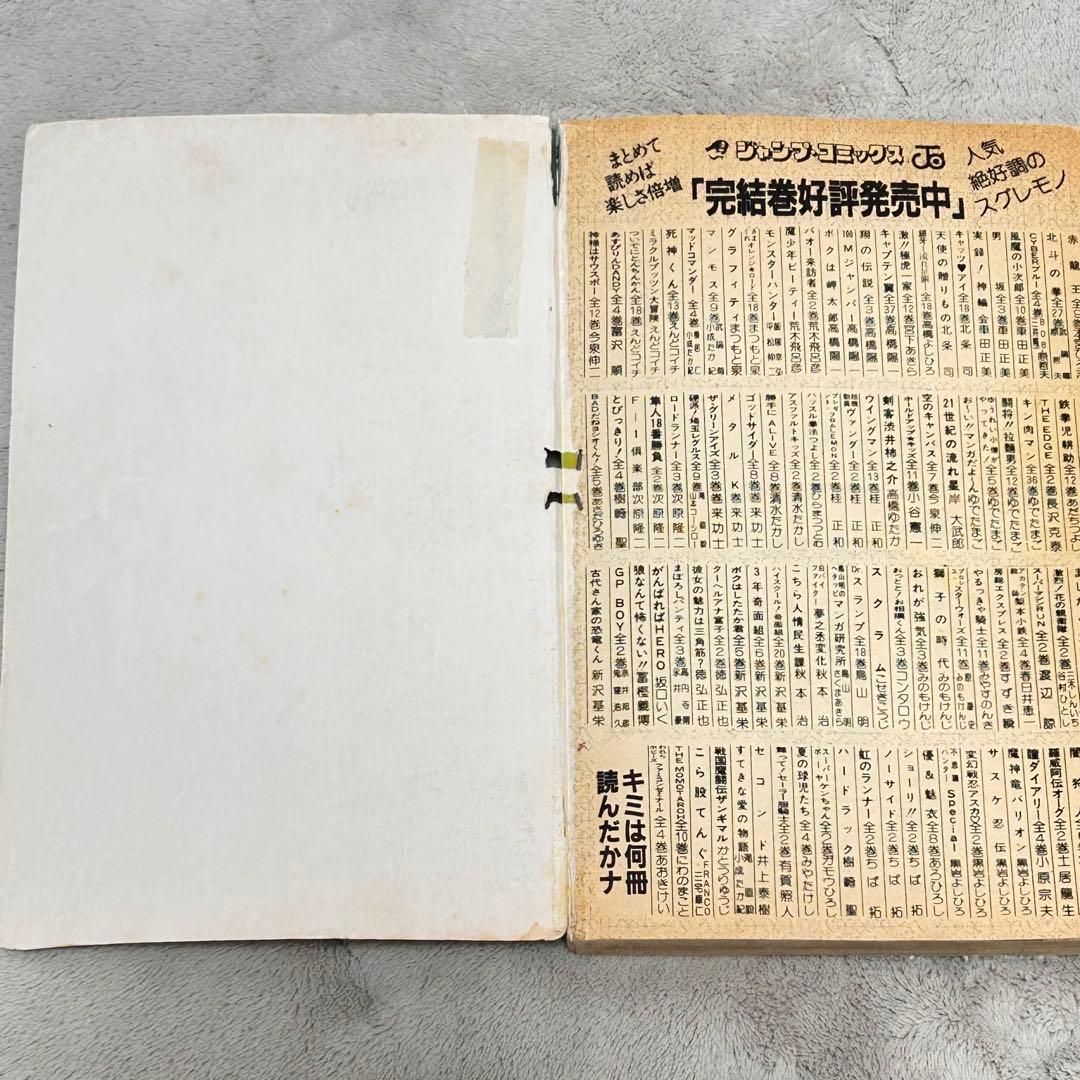 まとめて
読めば
楽しさ倍増
ジャンプ・コミックス
人気
絶好調の
スグレモノ
「完結巻好評発売中」
北斗の拳全27巻
CYBERブルー全4巻
風魔の小次郎全10巻車田正美
男坂全3巻車田正美
実録!神輪会車田正美
キャッツ♥アイ全18巻北条司
天使の贈りもの北条司
激!!極虎一家全12巻宮下あきら
キャプテン翼全37巻高橋陽一
翔の伝説全3巻高橋陽一
100Mジャンパー高橋陽一
ボクは岬太郎高橋陽一
バオー来訪者全2巻荒木飛呂彦
魔少年ビーティー荒木飛呂彦
モンスターハンター
きまぐれオレンジ★ロード全18巻まつもと泉
グラフィティまつもと泉
マンモス全9巻
マッドコマンダー全4巻
死神くん全13巻えんどコイチ
ミラクルプッツン大冒険えんどコイチ
ついでにとんちんかん全18巻えんどコイチ
あすぴりんDANDY全4巻富沢順
神様はサウスポー全12巻今泉伸二
鉄拳児耕助全12巻
THE EDGE全2巻長沢克泰
キン肉マン全36巻ゆでたまご
闘将!!拉麵男全12巻ゆでたまご
ゆうれい小僧がやってきた!全5巻ゆでたまご
お〜い!!マンガだよ〜んゆでたまご
21世紀の流れ星岸大武郎
空のキャンバス全7巻今泉伸二
ホールドアップ★キッズ全11巻小谷憲一
剣客渋井柿之介高橋ゆたか
ウイングマン全13巻桂正和
超機動員ヴァンダー全2巻桂正和
プレゼント・フロムLEMON全2巻桂正和
ハッスル拳法つよし全2巻ひらまつつとむ
アスファルトキッズ全2巻清水たかし
勝手にALIVE全8巻清水たかし
ゴッドサイダー全8巻巻来功士
メタルK巻来功士
ザ・グリーンアイズ全3巻巻来功士
硬派!埼玉レグルス全9巻
ロードランナー全3巻次原隆二
隼人18番勝負全2巻次原隆二
F-1倶楽部次原隆二
とびっきり!全4巻樹崎聖
BADだねヨシオくん!全5巻あさだひろゆき
激烈!花の親衛隊全2巻
スーパーマシンRUN全2巻渡辺諒
アカテン教師梨本小鉄全4巻春日井恵一
房総エクスプレス全2巻すずき瞬
やるっきゃ騎士全11巻みやすのんき
プロレス・スターウォーズ全11巻みのもけんじ
獅子の時代みのもけんじ
おれが強気全3巻みのもけんじ
おっとと!お相撲くん全3巻コンタロウ
スクラムこせきこうじ
Dr.スランプ全18巻鳥山明
鳥山明のヘタッピマンガ研究所さくまあきら鳥山明
白バイファイター夢之丞変化秋本治
こちら人情民生課秋本治
ハイスクール!奇面組全20巻新沢基栄
3年奇面組全6巻新沢基栄
ボクはしたたか君全5巻新沢基栄
ターヘルアナ富子全2巻徳弘正也
彼女の魅力は三角筋?徳弘正也
まぼろしパンティ全3巻
がんばればHERO坂口いく
狼なんて怖くない!!冨樫義博
GP BOY全2巻
古代さん家の恐竜くん新沢基栄
羅威阿伝オーグ全2巻土居龍生
瞳ダイアリー全4巻小原宗夫
魔神竜バリオン黒岩よしひろ
サスケ忍伝黒岩よしひろ
変幻戦忍アスカ全2巻黒岩よしひろ
不思議ハンターSpecial黒岩よしひろ
優&魅衣全8巻あろひろし
ショーリ!!全2巻ちば拓
ノーサイド全2巻ちば拓
虹のランナー全2巻ちば拓
ハードラック樹崎聖
スーパーボーヤケンちゃん全2巻ガモウひろし
夏の球児たち全4巻みやたけし
舞って!セーラー服騎士全2巻有賀照人
セコンド井上泰樹
すてきな愛の物語
戦国魔闘伝ザンギマルかとうりゅうじ
こら股てんぐ
THE MOMOTAROH全10巻にわのまこと
全4巻あおきけい
キミは何冊
読んだかナ